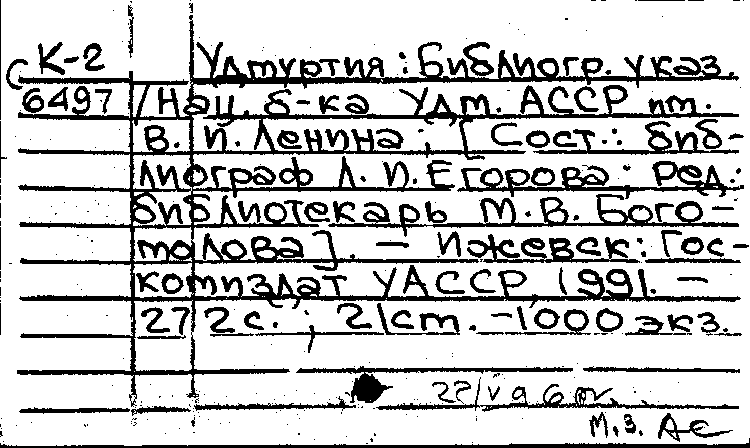 К-2 Удмуртия : Библиогр. указ.
6497 / Нац. б-ка Удм. АССР им.
В. И. Ленина ; [ Сост. : биб-
лиограф Л. П. Егорова ; Ред. :
библиотекарь М. В. Бого-
молова ]. – Ижевск : Гос-
комиздат УАССР, 1991. –
272 с. ; 21 см. – 1000 экз.
22/V 96
М.З.